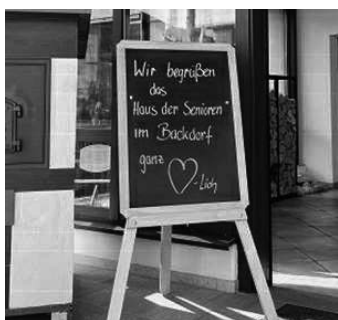 Wir begrüßen
das
"Haus der Senioren"
im Backdorf
ganz ♡-lich